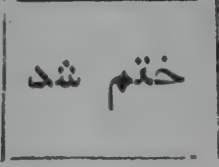 ختم شد